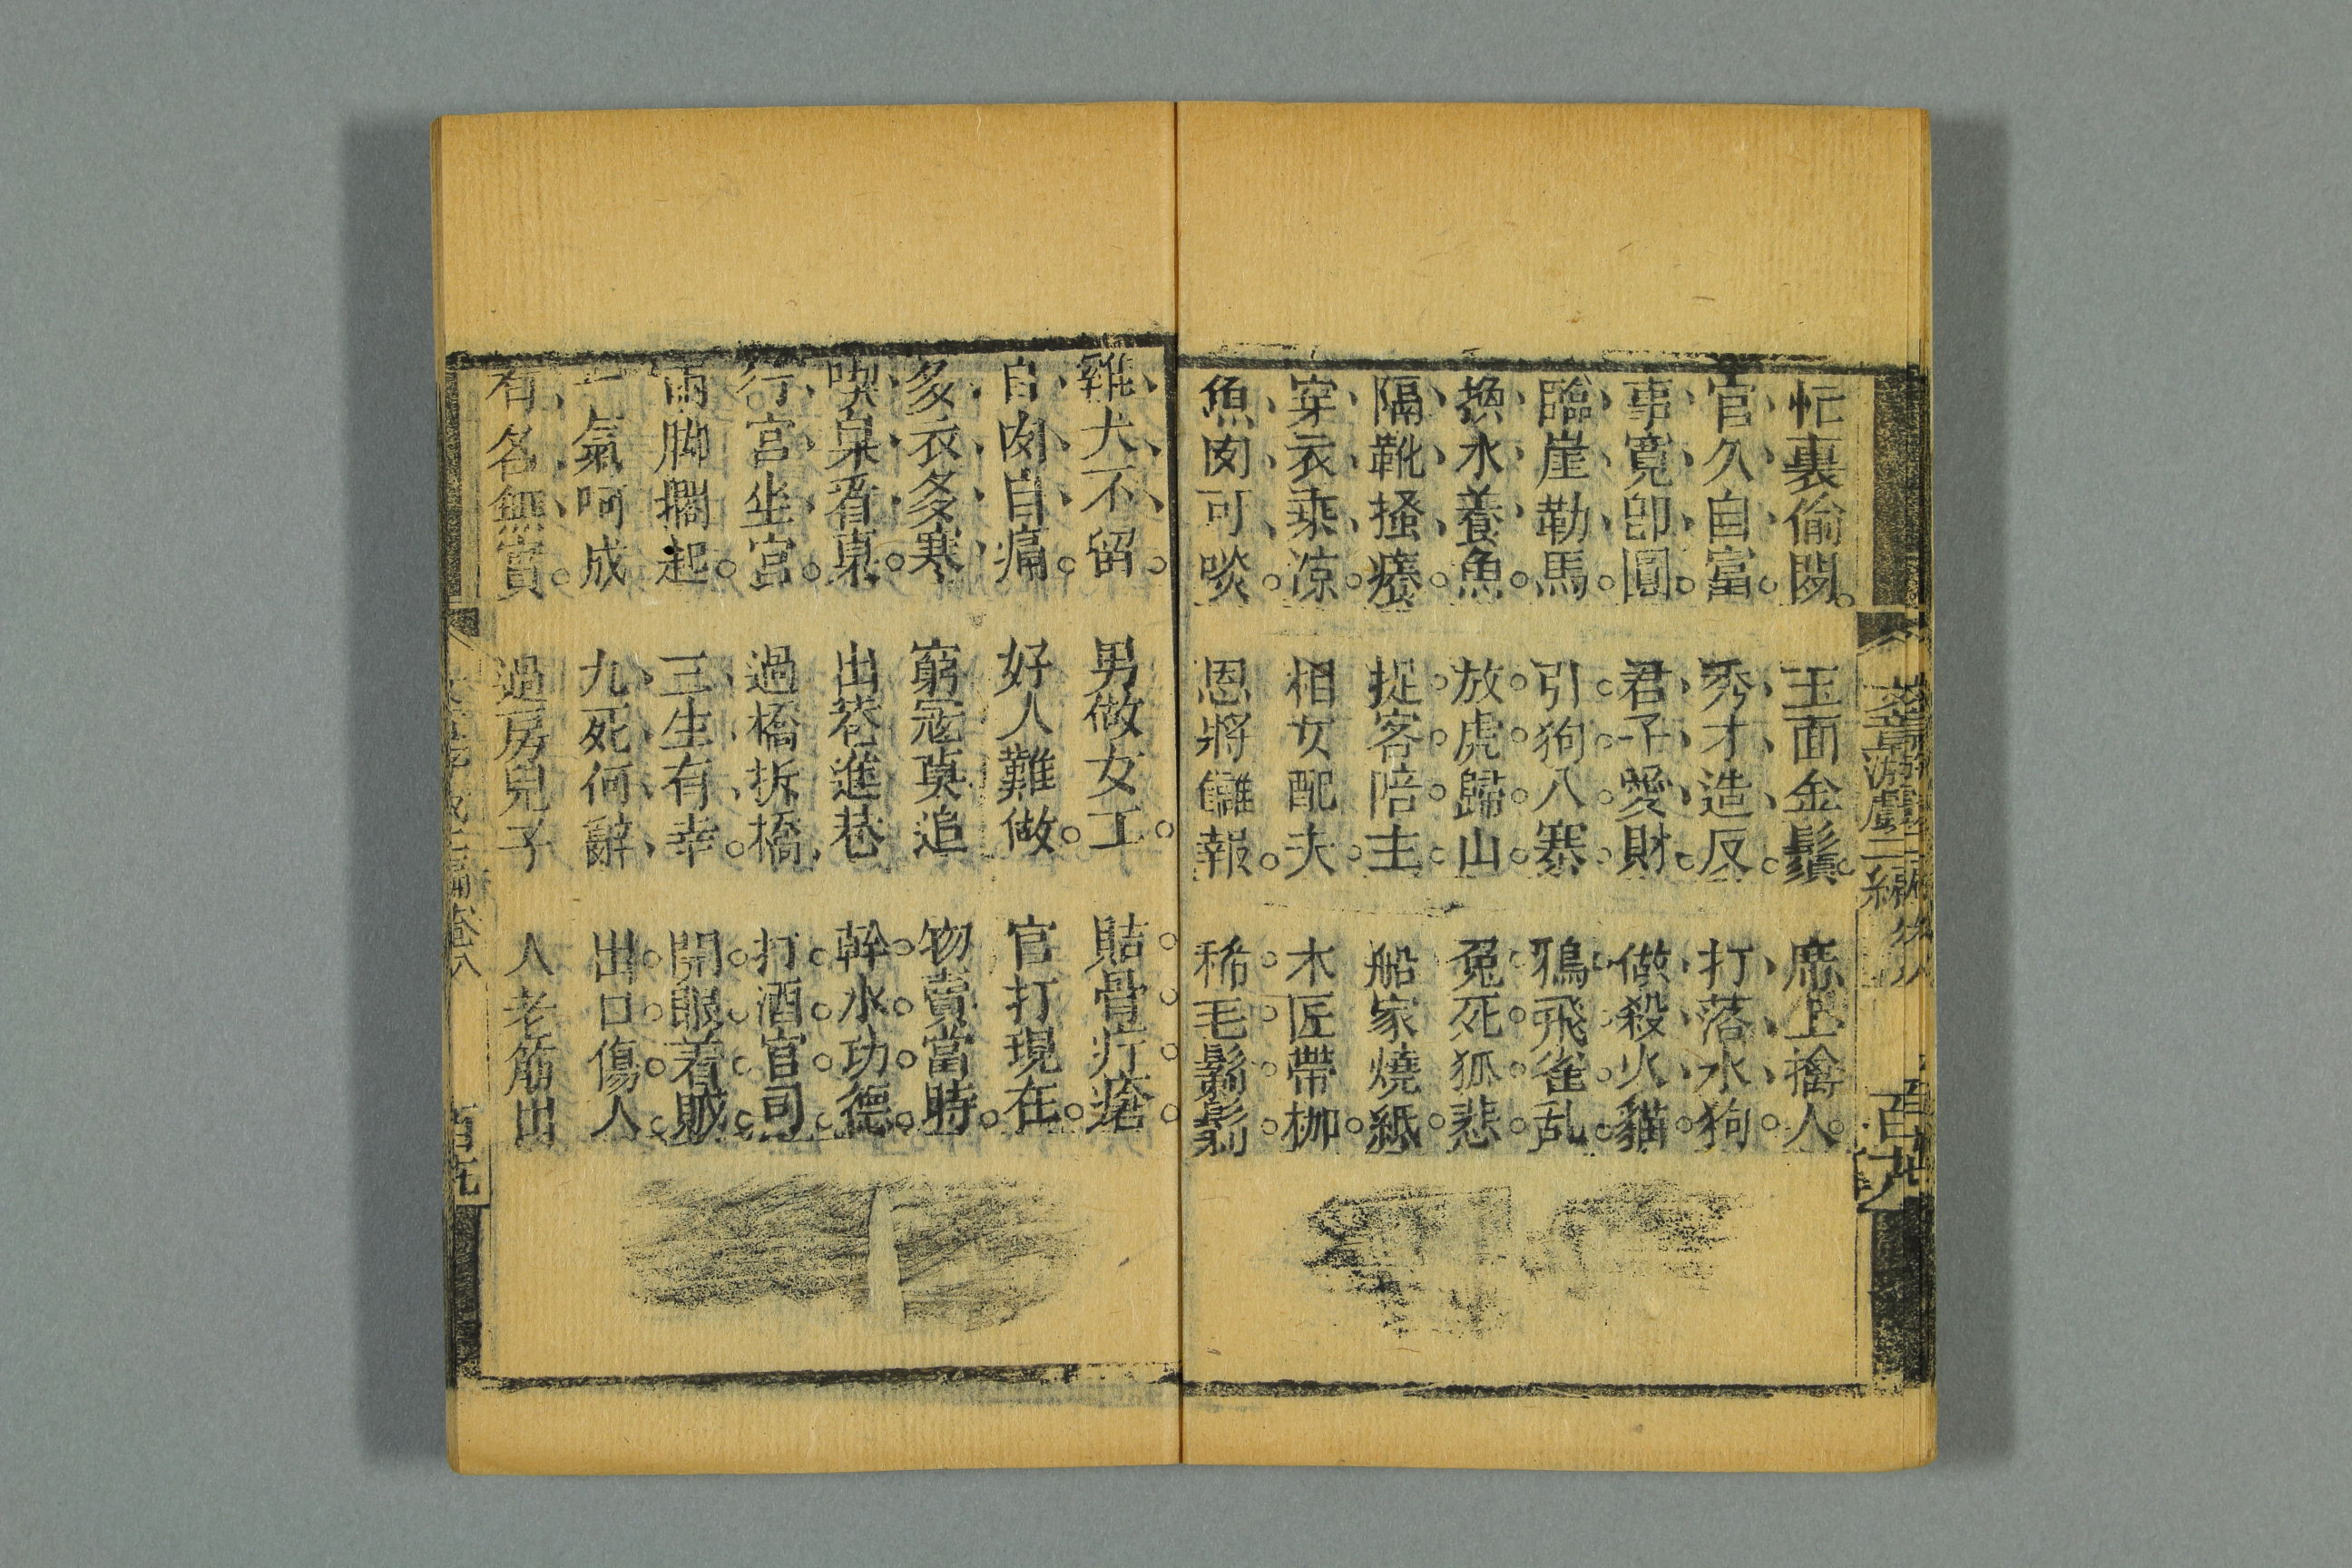 忙裏偷閑。 玉面金鬚。 席上擒人。
官久自富。 秀才造反。 打落水狗。
事寬卽圓。 君子愛財。 做殺火貓。
臨崖勒馬。 引狗入寨。 鴉飛雀乱。
換水養魚。 放虎歸山。 兔死狐悲。
隔靴搔癢。 捉客陪主。 船家燒紙。
穿衣乘凉。 相女配夫。 木匠帶枷。
魚肉可啖。 恩將讎報。 稀毛鬎鬁。
雞犬不留。 男做女工。 貼骨疔瘡。
自肉自痛。 好人難做。 官打現在。
多衣多寒 窮寇莫追 物賣當時。
喫梟看梟。 出巷進巷 幹水功德。
行宮坐宮。 過橋拆橋 打酒官司。
兩脚擱起。 三生有幸。 開眼着賊。
一氣呵成 九死何辭 出口傷人。
有名無實。 過房兒子 人老筋出